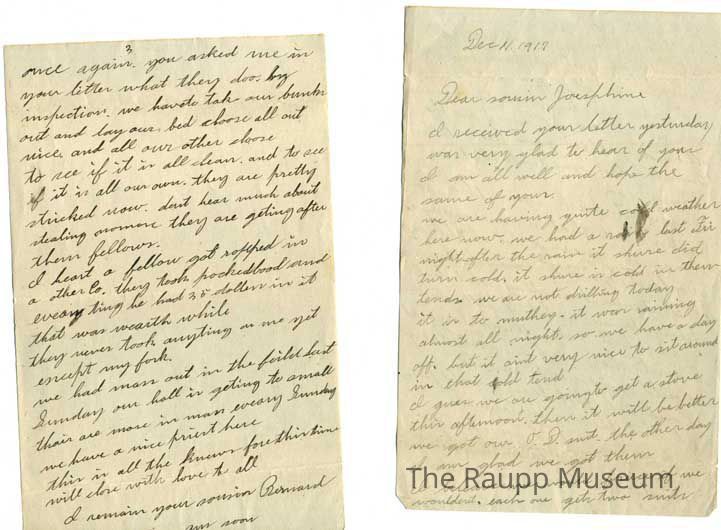 3
once again. you asked me in
your letter what they doo. by
inspection. we haveto tak our bunks
out and lay our bed choose all out
nice. and all our other choose
to see if it is all clean. and to see
if it is all our own. they are pretty
stricked now. dont hear much about
stealing anomore they are geting after
them fellows.
I heart a fellow got roffed in
a other Co. they took pockedbood and
everyting he had 35 dollers in it
that was wearth while
they never took anyting on me yet
except my fork.
we had mass out in the feild last
Sunday our hall is geting to small
thair are mose in mass eveary Sunday
we have a nice priest here
this is all the knews fore this time
will close with love to all
I remain your cousin Bernard
soon
Dec 11, 1917
Dear cousin Joesphine
I received your letter yesturday
was very glad to hear of your
I am all well and hope the
same of your.
we are having quite cold weather
here now. we had a rain last Fri
night after the rain it shure did
turn cold, it shure is cold in them
tends. we are not drilling today
it is to muthey. it was raining
almost all night, so we have a day
off. but it aint very nice to sit around
in that cold tend
I gues we are going to get a stove
this afternoon. then it will be better
we got our O. D. suit the other day
I am glad we got them
wouldent. each one gets two suits
The Raupp Museum